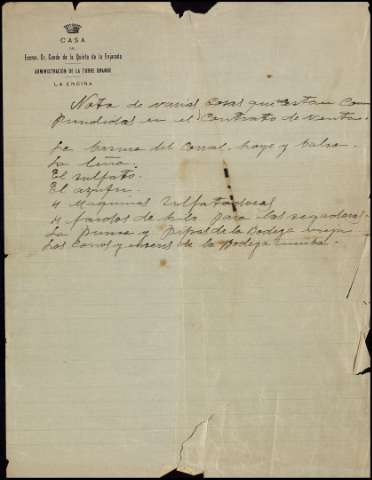 CASA
DEL
Excmo. Sr. Conde de la Quinta de la Enjarada
ADMINISTRACIÓN DE LA TORRE GRANDE
LA ENCINA
Nota de varias cosas que estan com
prendidas en el Contrato de venta.
La del corral, hoyo y balsa.
La leña.
El sulfato.
El azufre.
4 Maquinas Sulfatadoras
4 fardos de hilo para las segadoras.
La Prensa y Pipas de la Bodega vieja
Los Conos y enseres de la Bodega nueva.